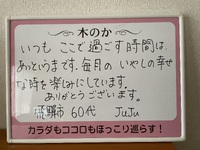 木のか
いつも ここで過ごす時間は
あっというまです。毎月の いやしの幸せ
な時を楽しみにしています。
ありがとうございます。
飯塚市 60代 JuJu
カラダもココロもほっこり巡らす!